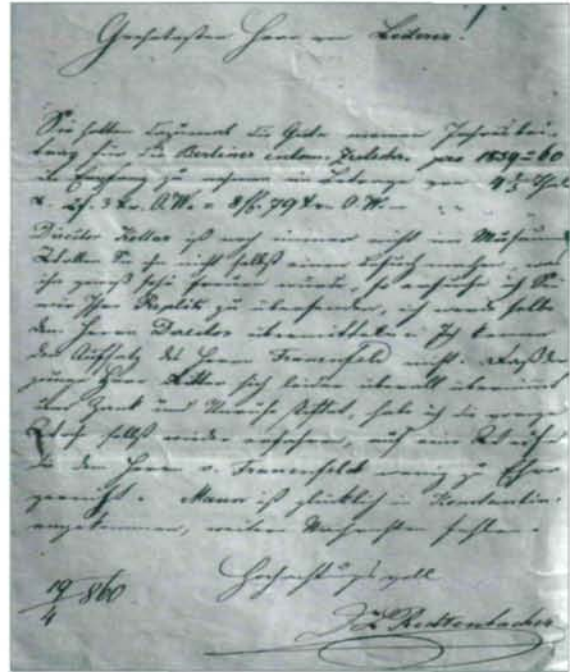 Geehrtester Herr von Lederer!
Sie hatten diesmal die Güte meinen Jahresbei-
trag für die Berliner entom. Zeitschr. pro 1859–60
in Empfang zu nehmen im Betrage von
8 fl. 79 kr. O.W. –
Director Kollar ist noch immer nicht im Museum
Wollen Sie ihn nicht selbst einen Besuch machen, was
ihn gewiß sehr freuen würde, so ersuche ich Sie
mir Ihre Replik zu übersenden, ich werde selbe
dem Herrn Director übermitteln. Ich kenne
den Aufsatz des Herrn Frauenfeld nicht. Daß der
junge Herr Ritter sich leider überall
und Zank und Unruhe stiftet, habe ich die vorige
Woche selbst wieder erfahren, auf eine Weise
die dem Herrn v. Frauenfeld wenig zu Ehre
gereicht. Mann ist glücklich in Konstantin.
angekommen, weitere Nachrichten fehlen.
Hochachtungsvoll
19/4 860
Redtenbacher